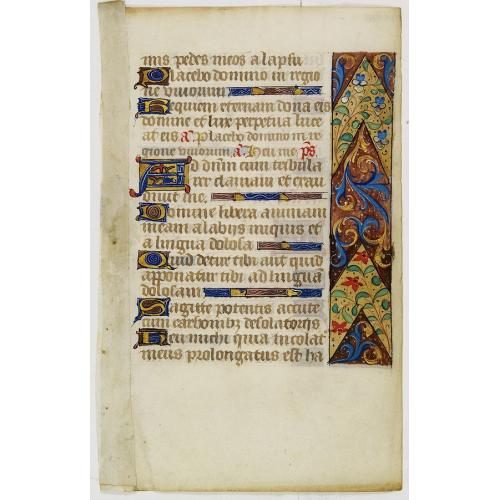 mis pedes meos a lapsu
Placebo domino in regio
ne vivorum
Requiem eternam dona eis
domine et lux perpetua luce
at eis a. Placebo domino in re
gione vivorum. a. Heu me. ps.
Ad dnm cum tribula
rer clamavi et exau
divit me.
Domine libera animam
meam a labiis iniquis et
a lingua dolosa
Quid detur tibi aut quid
apponatur tibi ad lingua
dolosam
Sagitte potentis accute
cum carbonib3 desolatoriis
Heu michi quia incolat
meus prolongatus est ha